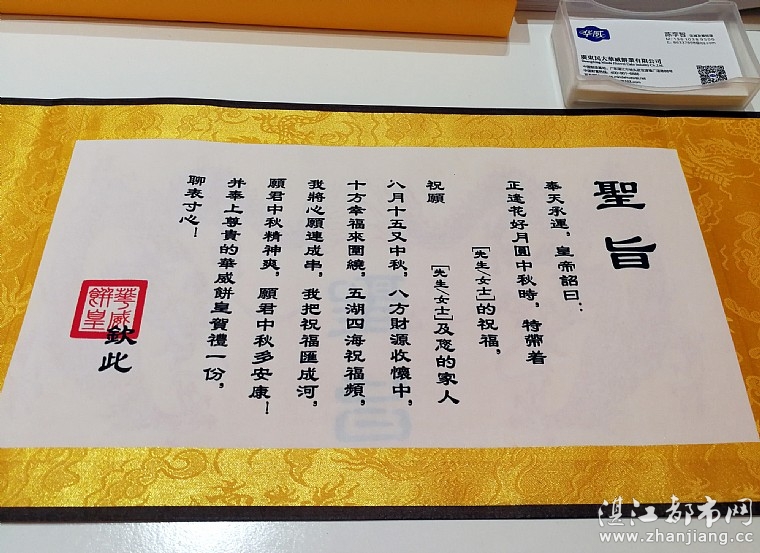 聖旨
奉天承運，皇帝詔曰：
正逢花好月圓中秋時，特帶着
[先生/女士]的祝福，
祝願
[先生/女士]及您的家人
八月十五又中秋，八方財源收懷中，
十方幸福來圍繞，五湖四海祝福頻，
我將心願連成串，我把祝福匯成河，
願君中秋精神爽，願君中秋多安康！
并奉上尊貴的華威餅皇賀禮一份，
聊表寸心！
欽此
華威餅皇
華威
陈李智
廣東民大華威餅業有限公司
湛江都市网
www.zhanjiang.cc